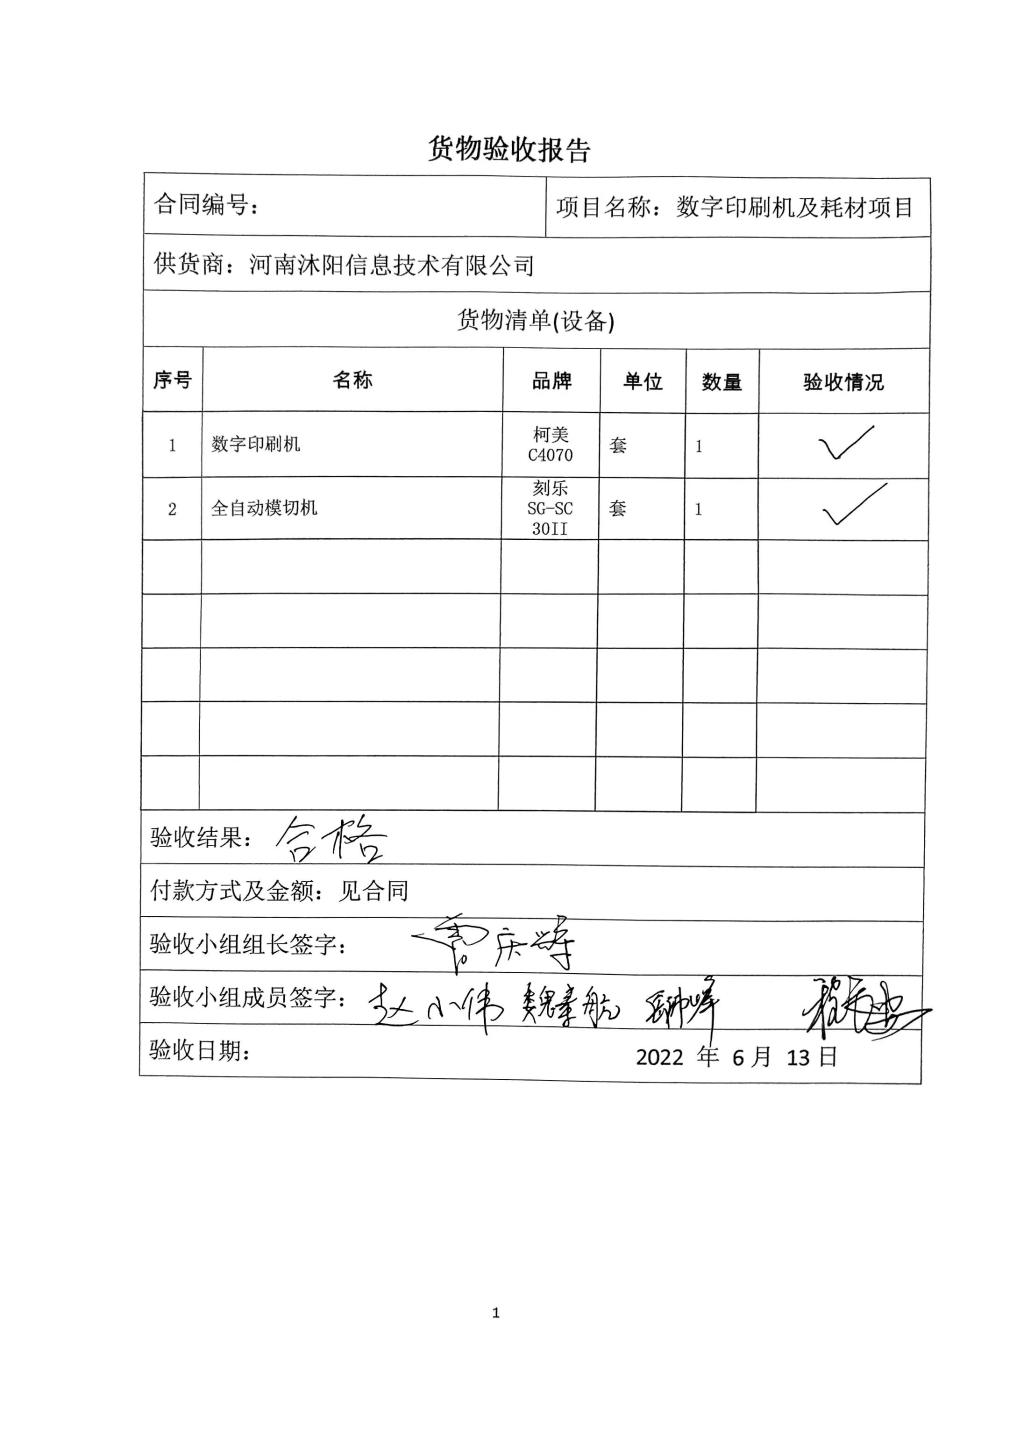 货物验收报告
合同编号： 项目名称：数字印刷机及耗材项目
供货商：河南沐阳信息技术有限公司
货物清单(设备)
序号 名称 品牌 单位 数量 验收情况
1 数字印刷机 柯美 C4070 套 1 ✓
2 全自动模切机 刻乐 SG-SC 30II 套 1 ✓
验收结果：合格
付款方式及金额：见合同
验收小组组长签字：
验收小组成员签字：赵小伟
验收日期： 2022 年 6 月 13 日
1